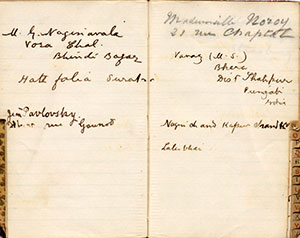 M. G. Naginavala
Vora Thal.
Bhindi Bazar
Hatt falia Surat
Jim Pavlovsky
rue Gounod
Mademoiselle
21 rue Chaptal
Varag (M. S.)
Bhera
Dist Shahpur
Punjab
India
Naginchand Kapurchand
Lalubhai